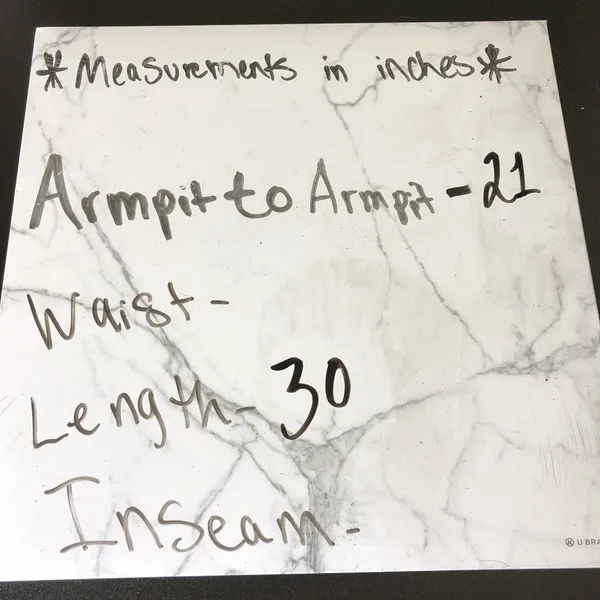 *Measurements in inches*
Armpit to Armpit - 21
Waist -
Length - 30
Inseam -
® U BRA